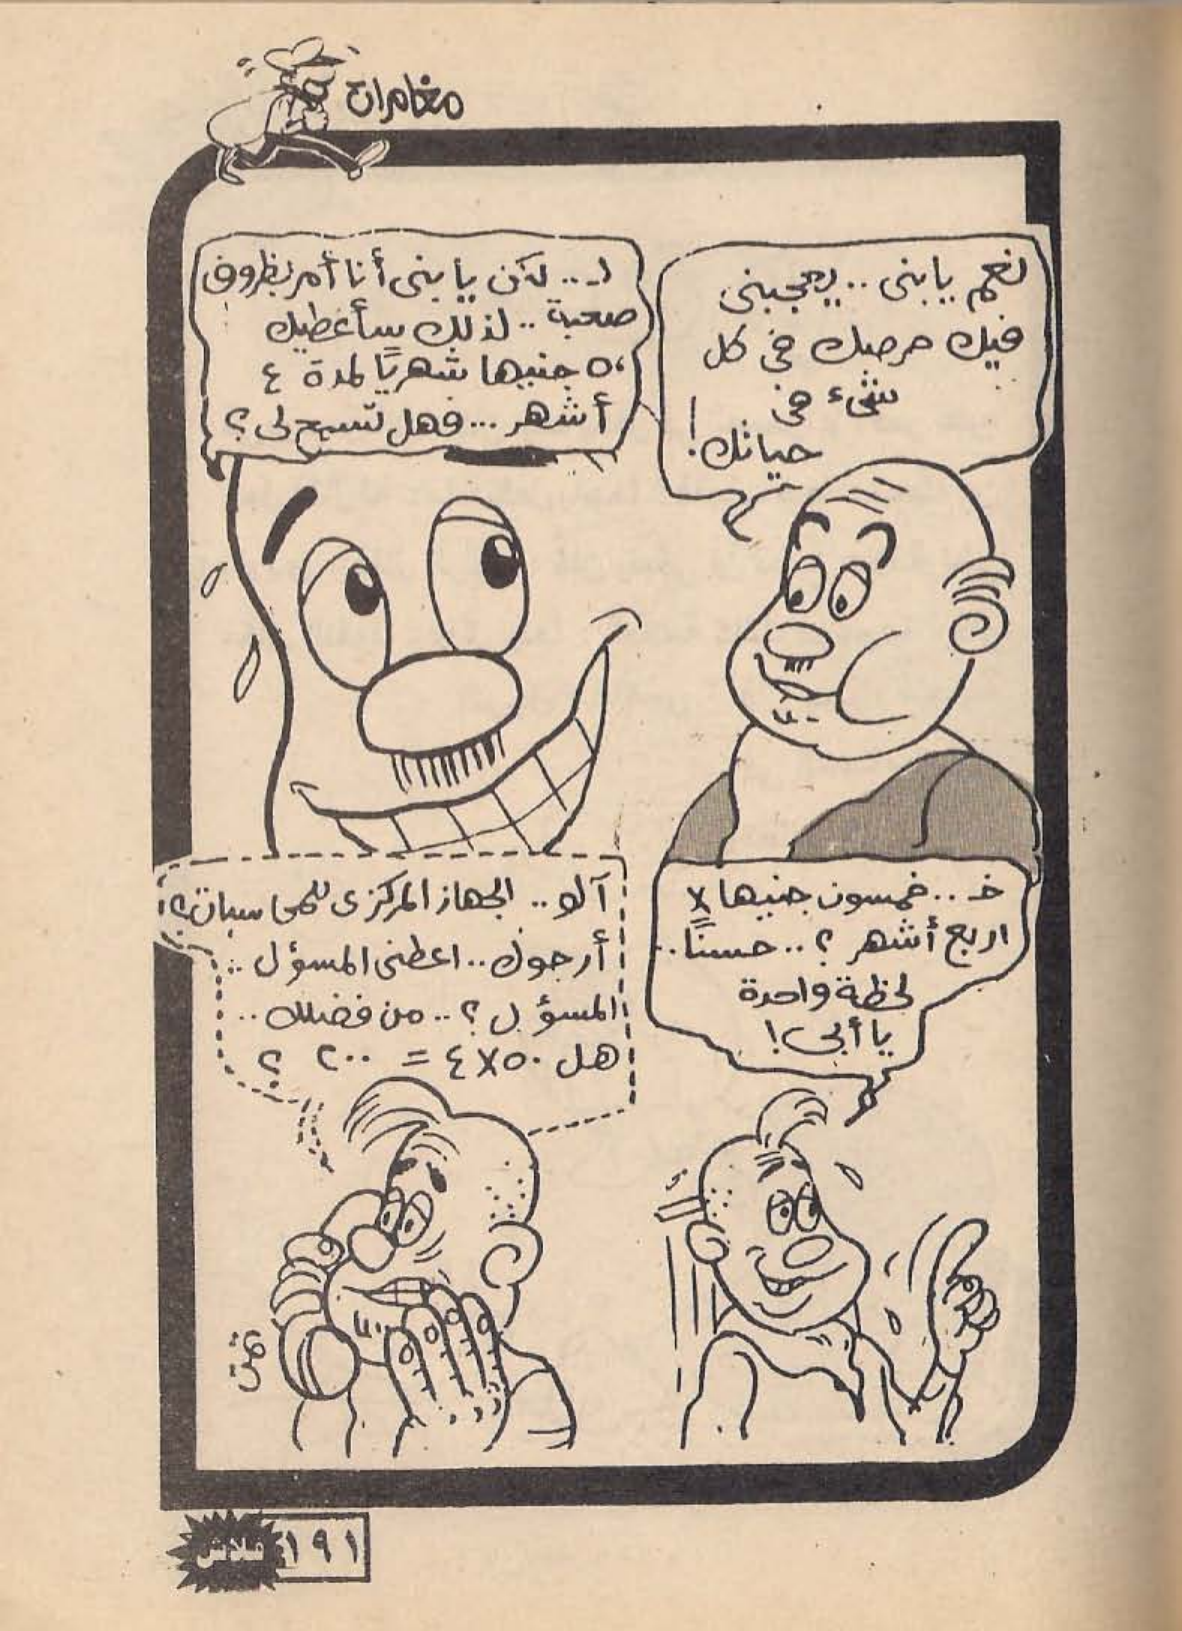 مغامرات
نعم يابنى .. يعجبنى
فيك حرصك فى كل
شىء فى
حياتك!
لـ .. لكن يا بنى أنا أمر بظروف
صعبة .. لذلك سأعطيك
٥٠ جنيها شهريًا لمدة ٤
أشهر ... فهل تسمح لى ؟
خـ ... خمسون جنيها X
اربع أشهر ؟ .. حسنًا ..
لحظة واحدة
يا أبى!
آلو .. الجهاز المركزى للمحاسبات ؟!
أرجوك .. اعطنى المسؤل ..
المسؤل ؟ .. من فضلك ..
هل ٥٠ X ٤ = ٢٠٠ ؟
تمت
١٩١ فلاش